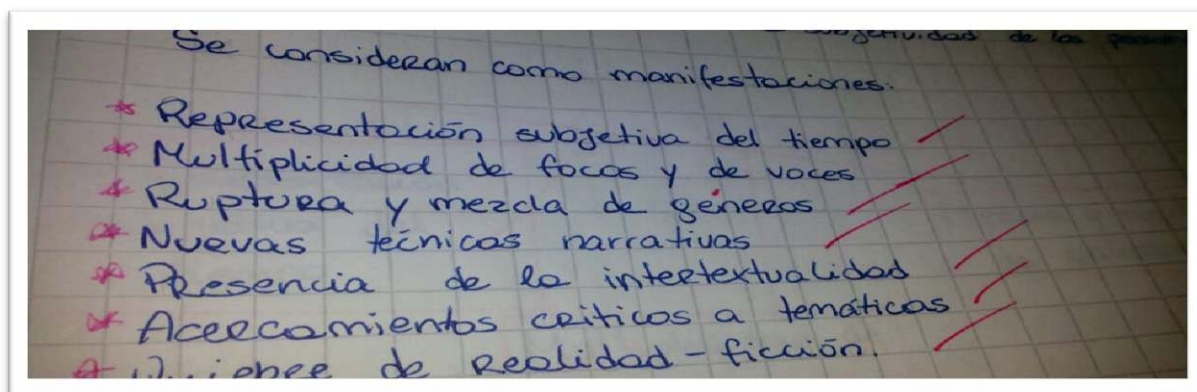 subjetividad de los
Se consideran como manifestaciones:
* Representación subjetiva del tiempo
* Multiplicidad de focos y de voces
* Ruptura y mezcla de géneros
* Nuevas técnicas narrativas
* Presencia de la intertextualidad
* Acercamientos críticos a temáticas
* de realidad - ficción.